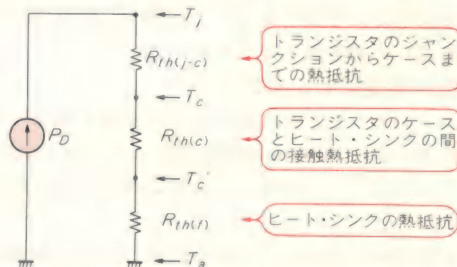 T_j
R_th(j-c)
トランジスタのジャン
クションからケースま
での熱抵抗
T_c
P_D
R_th(c)
トランジスタのケース
とヒート・シンクの間
の接触熱抵抗
T_c'
R_th(f)
ヒート・シンクの熱抵抗
T_a